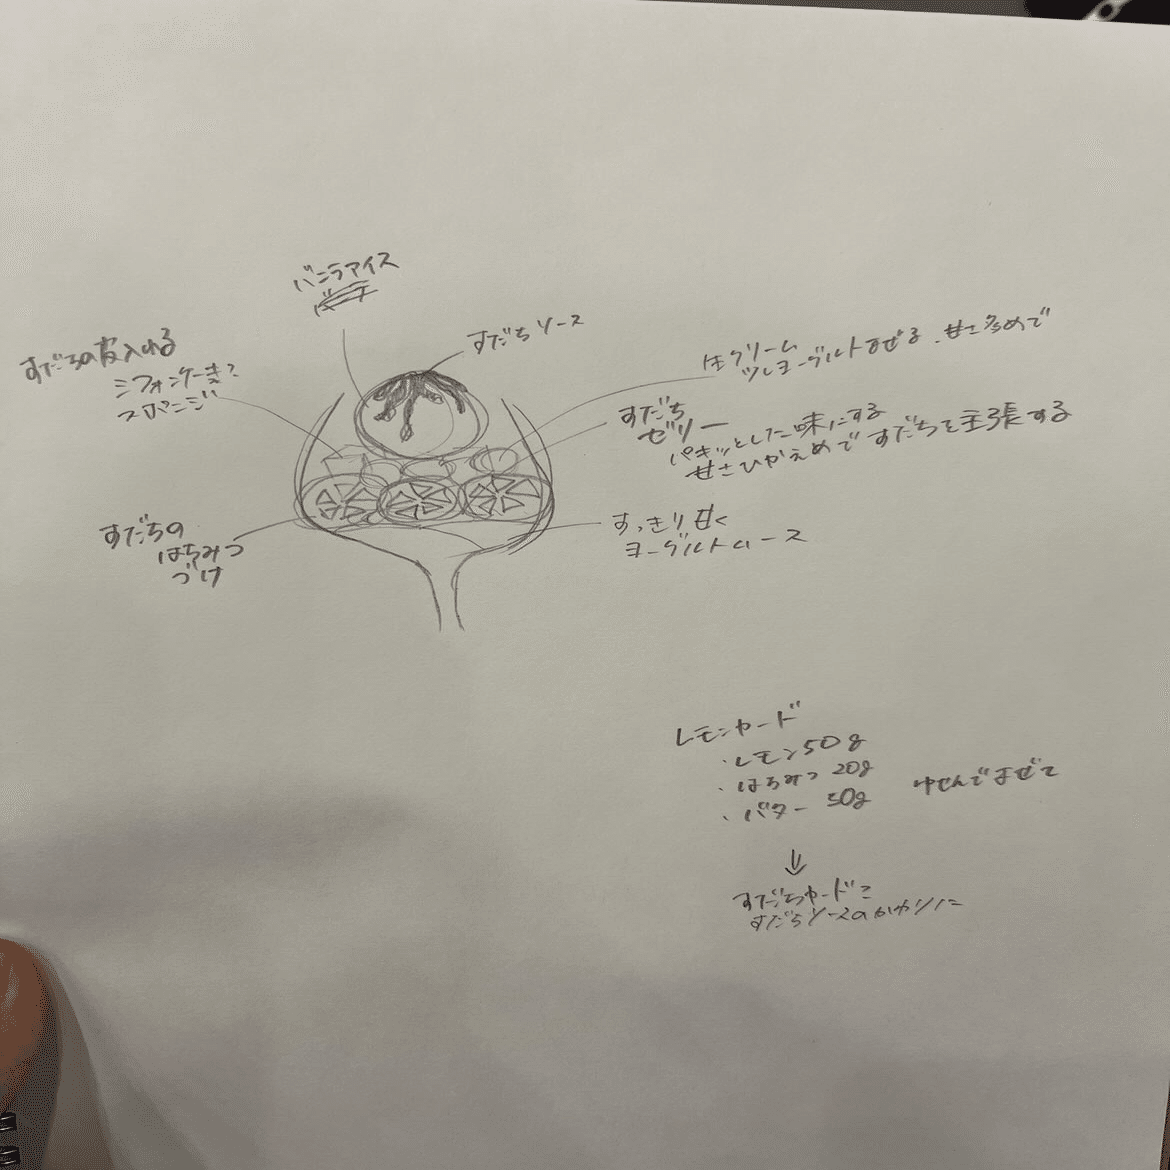 バニラアイス
すだちソース
すだちの皮入れる
シフォンケーキ?
スポンジ
生クリーム
少しヨーグルトまぜる、甘さ多めで
すだち
ゼリー
パキッとした味にする
甘さひかえめですだちを主張する
すだちの
はちみつ
づけ
すっきり甘く
ヨーグルトムース
レモンカード
・レモン50g
・はちみつ 20g
・バター 50g
ゆせんでまぜて
↓
すだちカードに
すだちソースのかわりに